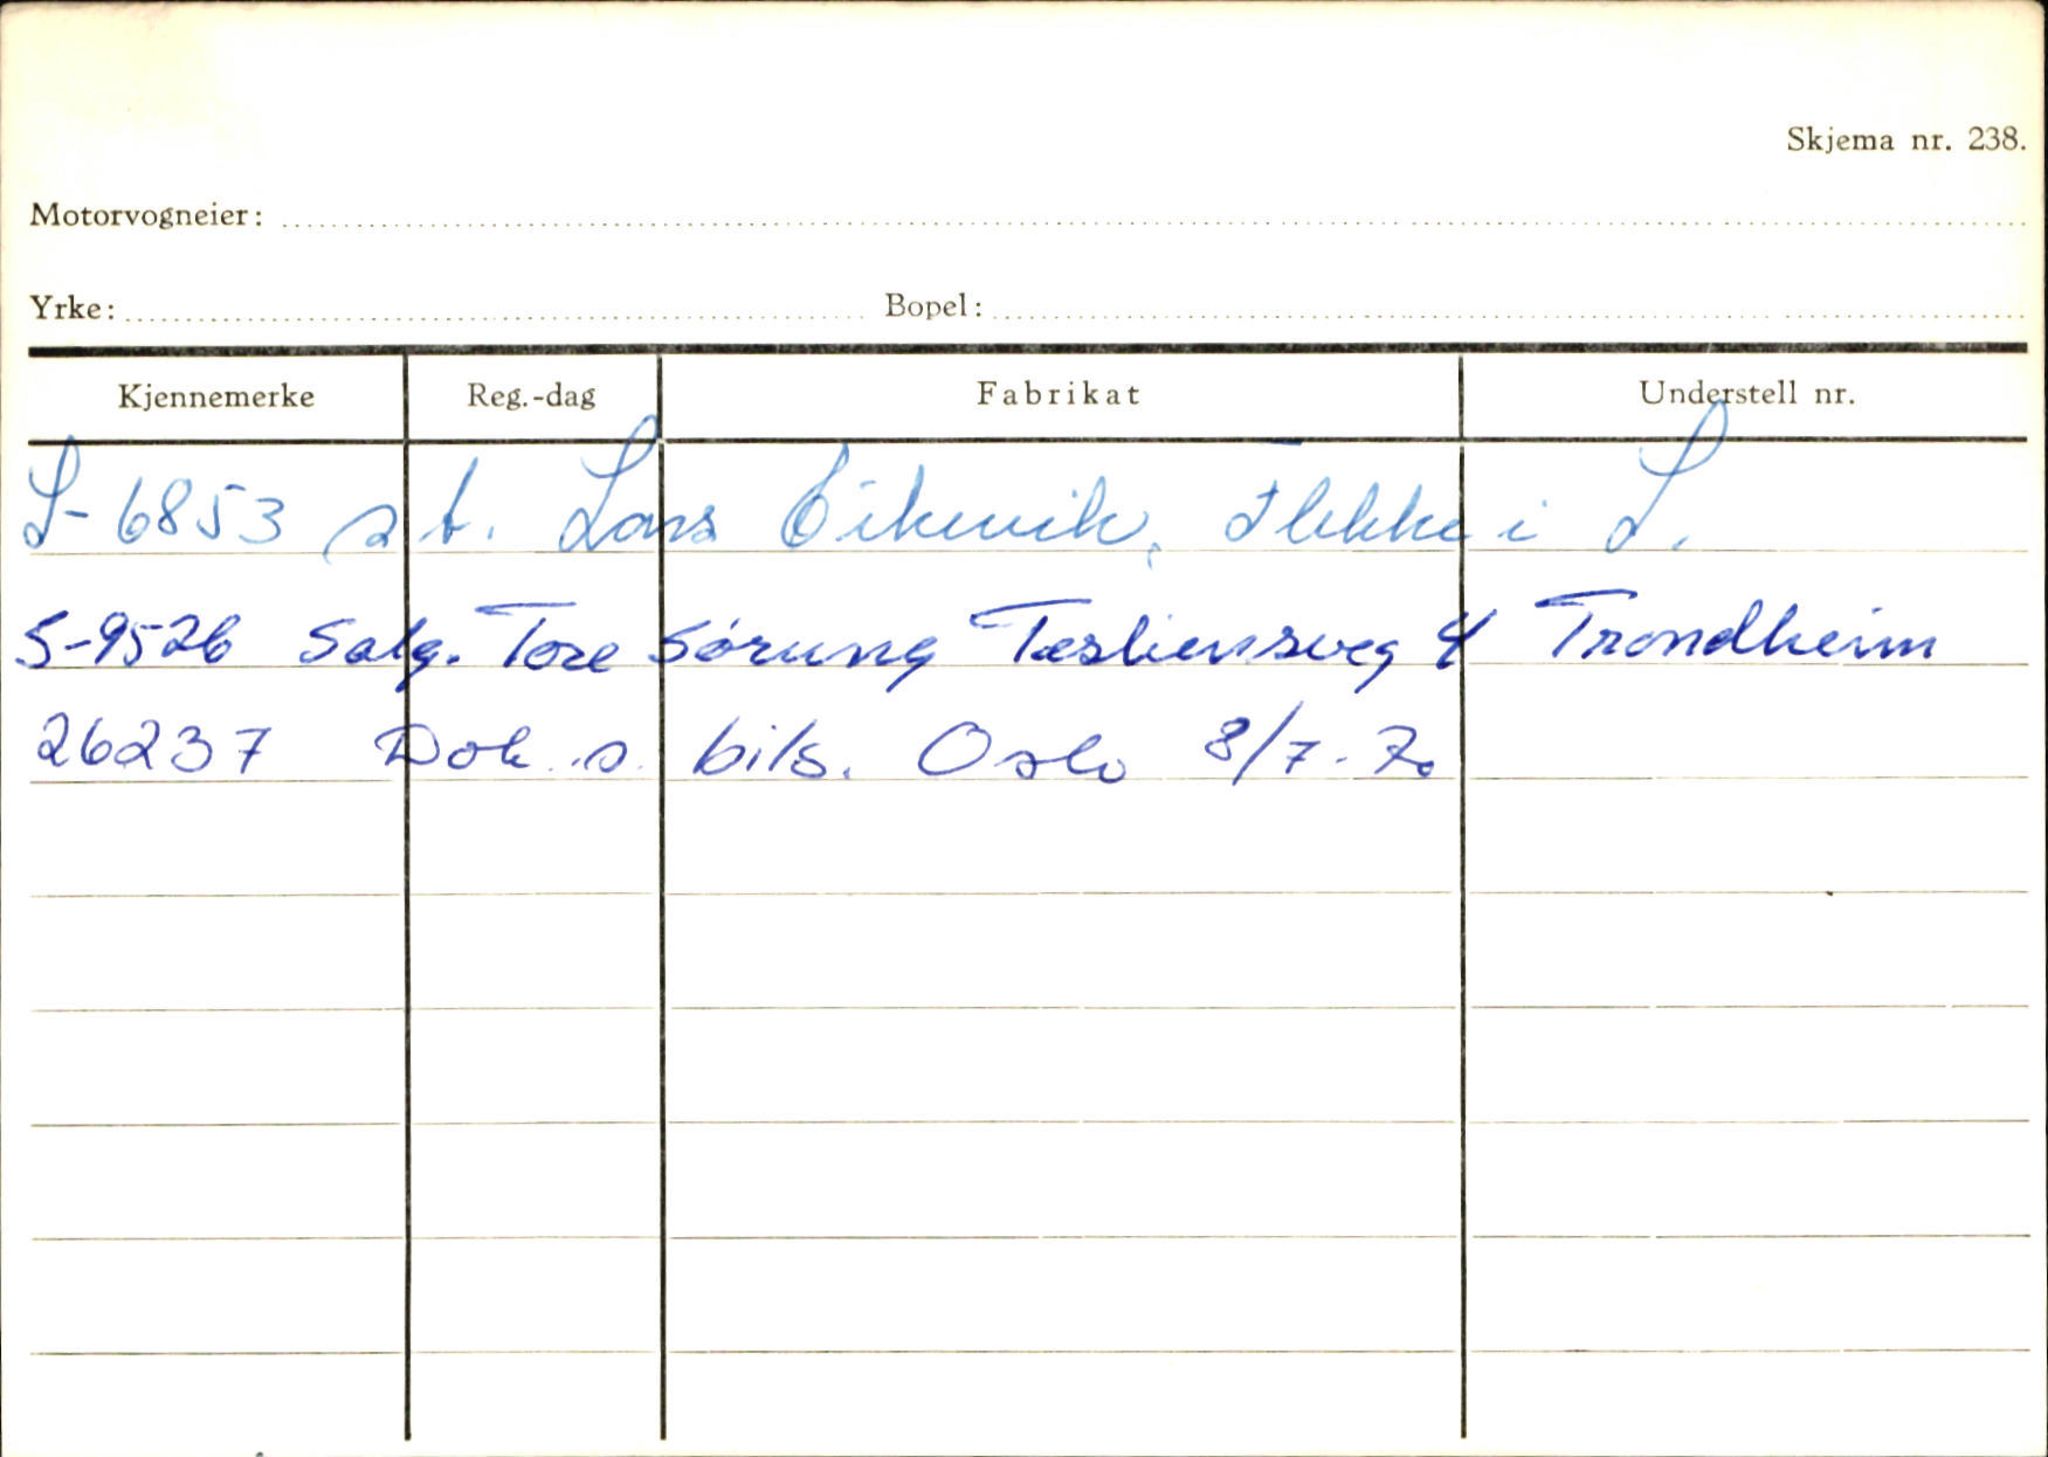 Skjema nr. 238.
Motorvogneier:
Yrke: Bopel:
Kjennemerke Reg.-dag Fabrikat Understell nr.
S-6853 s t. Lars Eikevik, Flekke i S.
S-9526 Salg. Tore Sørung Tesliensveg 4 Trondheim
26237 Dok. s. bils. Oslo 8/7-70